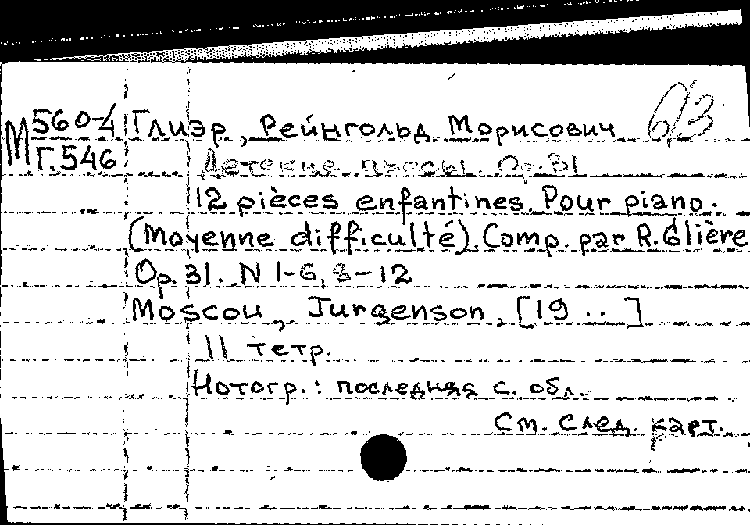 М 560-4 Глиэр, Рейнгольд Морисович б/з
Г.546 Детские пьесы. Op.31
12 pièces enfantines. Pour piano.
(Moyenne difficulté). Comp. par R. Glière
Op. 31. N 1-6, 8-12
Moscou, Jurgenson, [19 ..]
11 тетр.
Нотогр.: последняя с. обл.
См. след. карт.